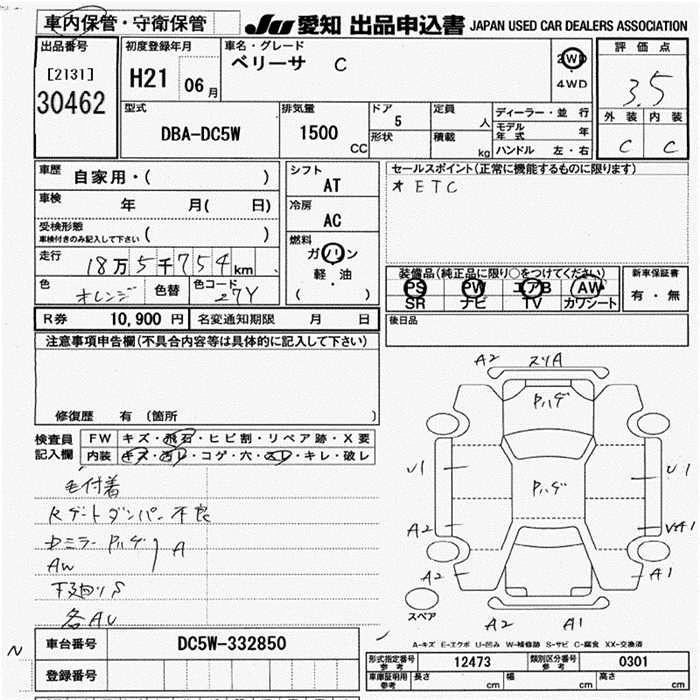 車内保管・守衛保管 JU 愛知 出品申込書 JAPAN USED CAR DEALERS ASSOCIATION
出品番号 初度登録年月 車名・グレード 評価点
[2131] H21 06月 ベリーサ C 2WD 3.5
30462 4WD
型式 排気量 ドア 定員 ディーラー・並行 外装 内装
DBA-DC5W 1500 CC 5 人 モデル年式 年 C C
形状 積載 kg ハンドル 左・右
車歴 自家用・( ) シフト AT セールスポイント(正常に機能するものに限ります)
車検 年 月( 日) 冷房 AC * ETC
受検形態
車検付きのみ記入して下さい ( )
走行 18万5千754km 燃料 ガソリン 軽・油 ( )
色 オレンジ 色替 色コード 27Y
装備品(純正品に限り○をつけてください) 新車保証書
PS PW エアB AW 有・無
SR ナビ TV カワシート
R券 10,900円 名変通知期限 月 日 後日品
注意事項申告欄(不具合内容等は具体的に記入して下さい)
修復歴 有 (箇所 )
検査員記入欄 FW キズ・飛石・ヒビ割・リペア跡・X要
内装 キズ・汚レ・コゲ・穴・スレ・キレ・破レ
毛付着
Rゲートダンパー不良
ドミラーPハゲ A
AW
下廻りS
各AU
A2 スリA
Pハゲ
U1 Pハゲ U1
A2 A1
A2 A1
スペア A2 A1
A-キズ E-エクボ U-凹み W-補修跡 S-サビ C-腐食 XX-交換済
N
車台番号 DC5W-332850
登録番号
形式指定番号 参考 12473 類別区分番号 参考 0301
車庫証明用 参考 長さ cm 幅 cm 高さ cm